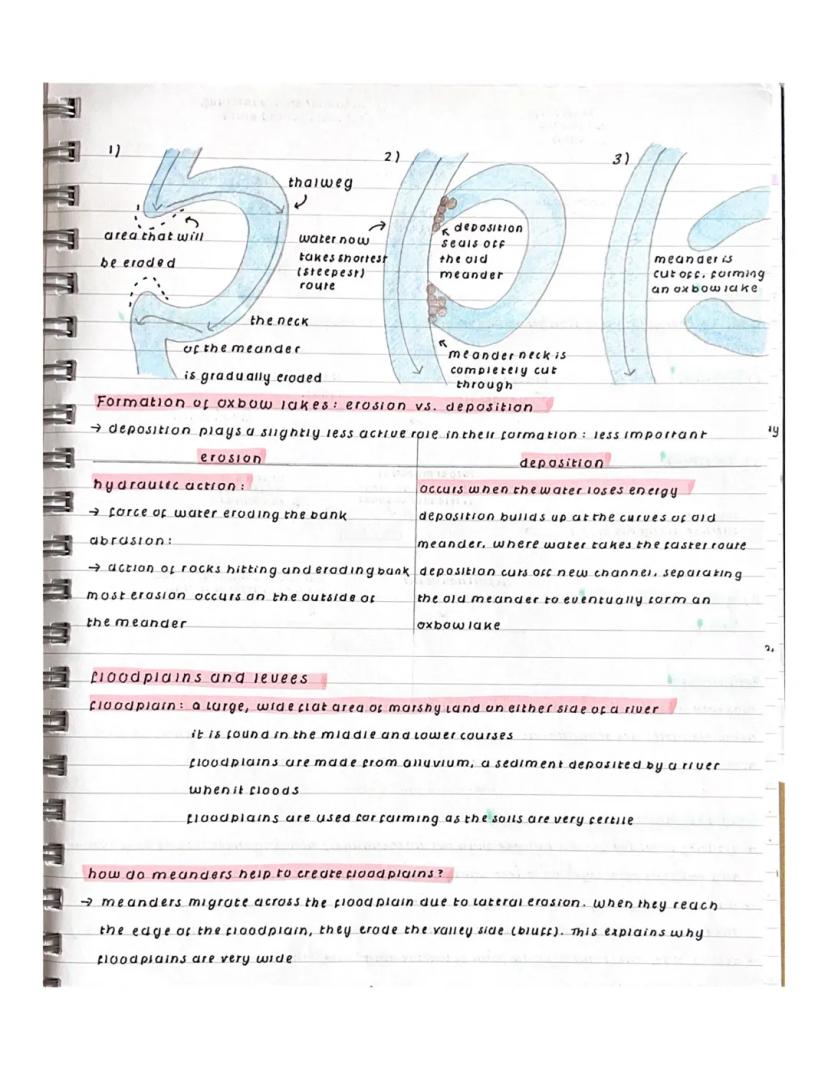 1)
thalweg
area that will
be eroded
the neck
of the meander
is gradually eroded
2)
water now
takes shortest
(steepest)
route
deposition
seals off
the old
meander
meander neck is
completely cut
through
3)
meander is
cut off, forming
an oxbow lake
Formation of oxbow lakes: erosion vs. deposition
→ deposition plays a slightly less active role in their formation: less important
erosion
hydraulic action:
→ force of water eroding the bank
abrasion:
→ action of rocks hitting and eroding bank
most erosion occurs on the outside of
the meander
deposition
occurs when the water loses energy
deposition builds up at the curves of old
meander, where water takes the faster route
deposition cuts off new channel, separating
the old meander to eventually form an
oxbow lake
floodplains and levees
floodplain: a large, wide flat area of marshy land on either side of a river
it is found in the middle and lower courses
floodplains are made from alluvium, a sediment deposited by a river
when it floods
floodplains are used for farming as the soils are very fertile
how do meanders help to create floodplains?
→ meanders migrate across the floodplain due to lateral erosion. When they reach
the edge of the floodplain, they erode the valley side (bluff). This explains why
floodplains are very wide